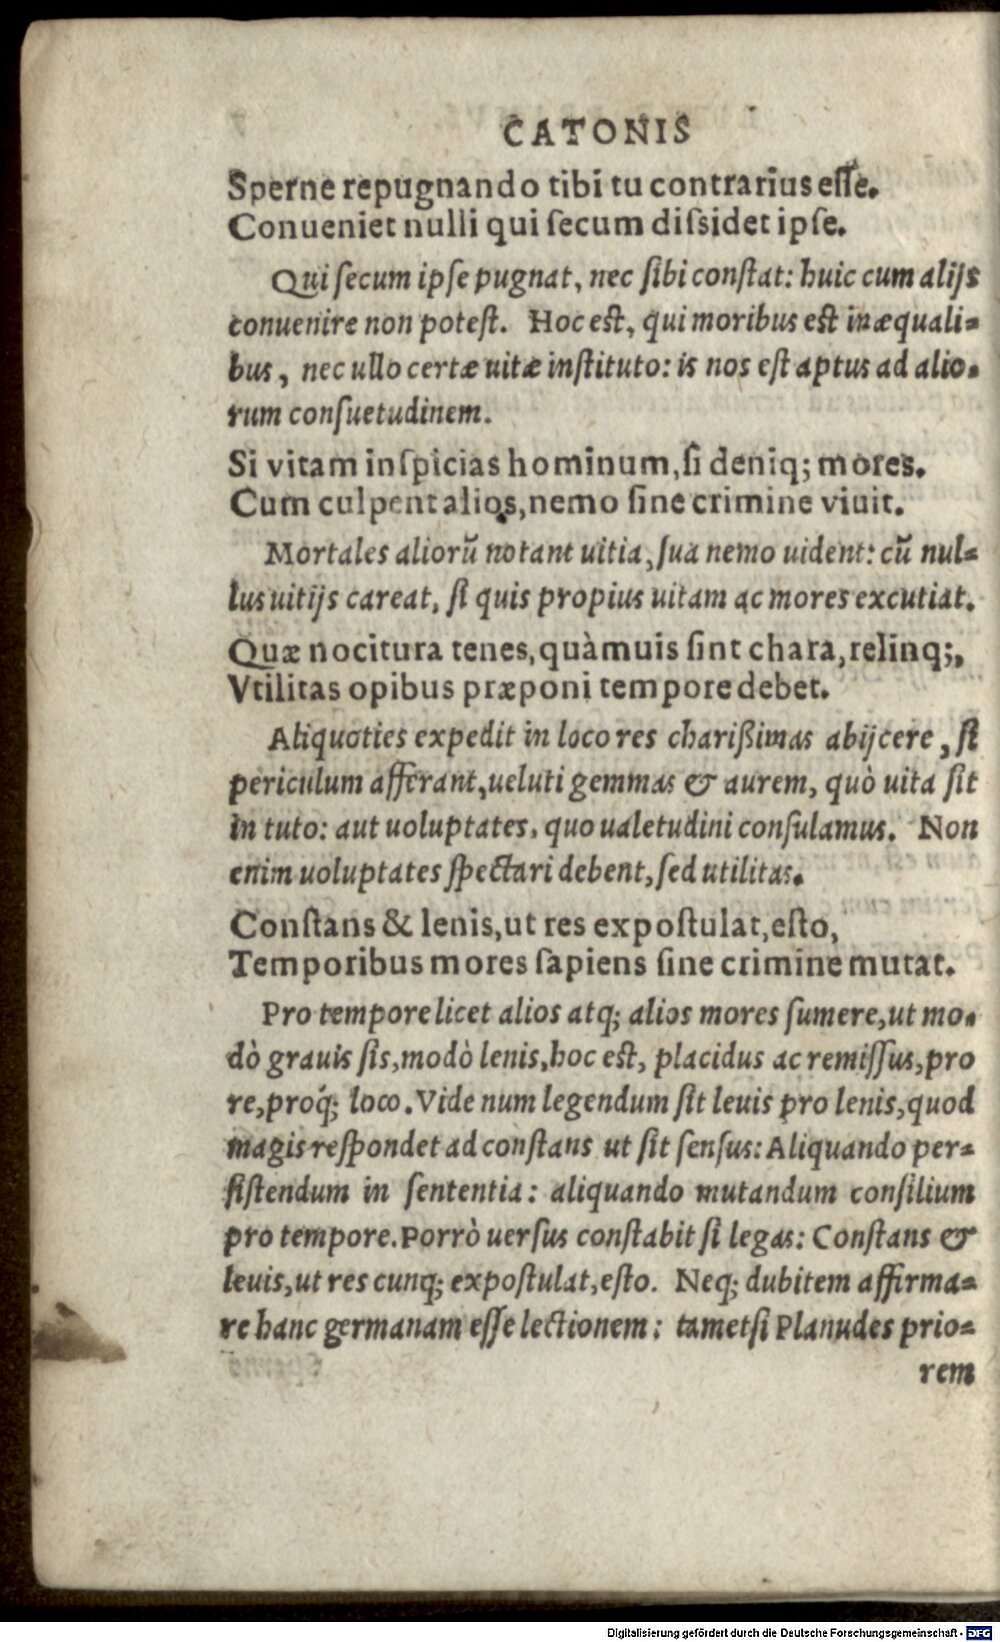 CATONIS
Sperne repugnando tibi tu contrarius esse.
Conueniet nulli qui secum dissidet ipse.
Qui secum ipse pugnat, nec sibi constat: huic cum alijs
conuenire non potest. Hoc est, qui moribus est inæquali-
bus, nec ullo certæ uitæ instituto: is nos est aptus ad alio-
rum consuetudinem.
Si vitam inspicias hominum, si deniq; mores.
Cum culpent alios, nemo sine crimine viuit.
Mortales aliorũ notant uitia, sua nemo uident: cũ nul-
lus uitijs careat, si quis propius uitam ac mores excutiat.
Quæ nocitura tenes, quàmuis sint chara, relinq;,
Vtilitas opibus præponi tempore debet.
Aliquoties expedit in loco res charißimas abijcere, si
periculum afferant, ueluti gemmas & aurem, quò uita sit
in tuto: aut uoluptates, quo ualetudini consulamus. Non
enim uoluptates spectari debent, sed utilitas.
Constans & lenis, ut res expostulat, esto,
Temporibus mores sapiens sine crimine mutat.
Pro tempore licet alios atq; alios mores sumere, ut mo-
dò grauis sis, modò lenis, hoc est, placidus ac remissus, pro
re, proq́; loco. Vide num legendum sit leuis pro lenis, quod
magis respondet ad constans ut sit sensus: Aliquando per-
sistendum in sententia: aliquando mutandum consilium
pro tempore. Porrò uersus constabit si legas: Constans &
leuis, ut res cunq; expostulat, esto. Neq; dubitem affirma-
re hanc germanam esse lectionem: tametsi Planudes prio-
rem
Digitalisierung gefördert durch die Deutsche Forschungsgemeinschaft - DFG